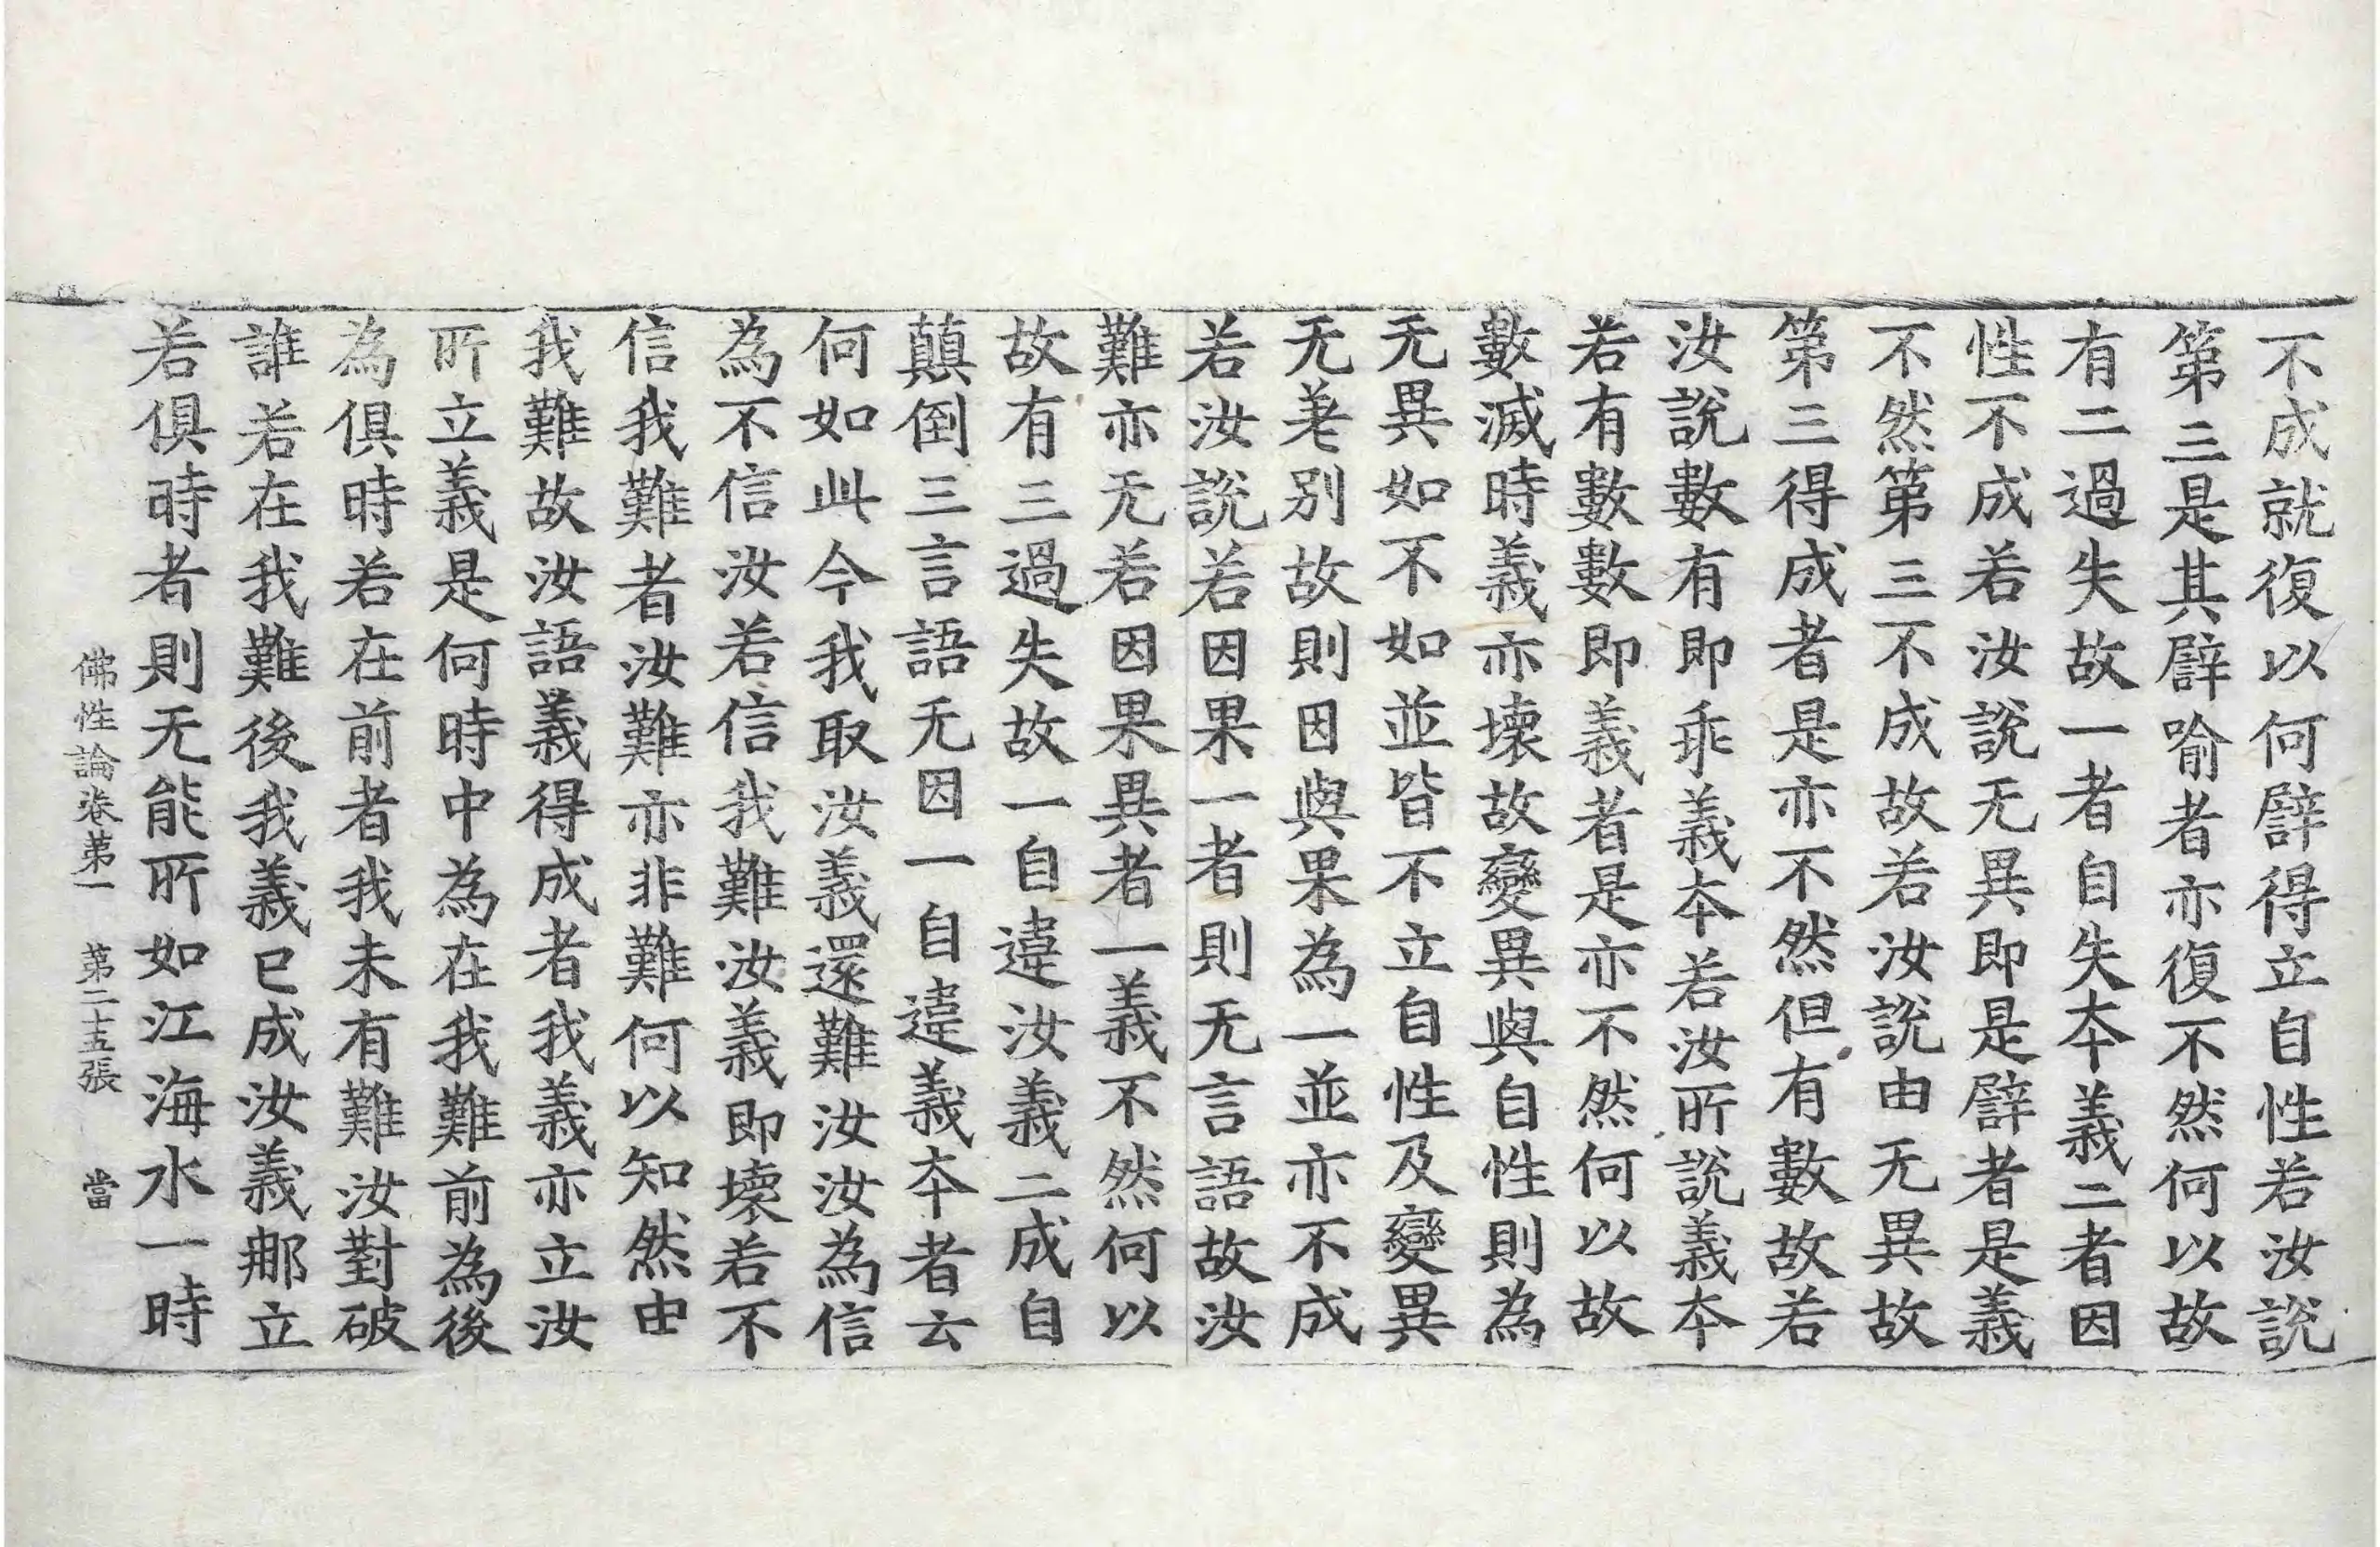 不成就復以何譬得立自性若汝說
第三是其譬喻者亦復不然何以故
有二過失故一者自失本義二者因
性不成若汝說无異即是譬者是義
不然第三不成故若汝說由无異故
第三得成者是亦不然但有數故若
汝說數有即乖義本若汝所說義本
若有數數即義者是亦不然何以故
數滅時義亦壞故變異與自性則為
无異如不如並皆不立自性及變異
无差別故則因與果為一並亦不成
若汝說若因果一者則无言語故汝
難亦无若因果異者一義不然何以
故有三過失故一自違汝義二成自
顛倒三言語无因一自違義本者云
何如此今我取汝義還難汝汝為信
為不信汝若信我難汝義即壞若不
信我難者汝難亦非難何以知然由
我難故汝語義得成者我義亦立汝
所立義是何時中為在我難前為後
為俱時若在前者我未有難汝對破
誰若在我難後我義已成汝義那立
若俱時者則无能所如江海水一時
佛性論卷第一 第二十五張 當